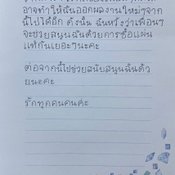 อาจทำให้ฉันออกผลงานใหม่ๆจาก
นี้ไปได้อีก ดังนั้น ฉันหวังว่าเพื่อนๆ
จะช่วยสนุนฉันด้วยการซื้อแผ่น
แท้กันเยอะๆนะคะ
ต่อจากนี้ไปช่วยสนับสนุนฉันด้ว
ยนะคะ
รักทุกคนคนค่ะ